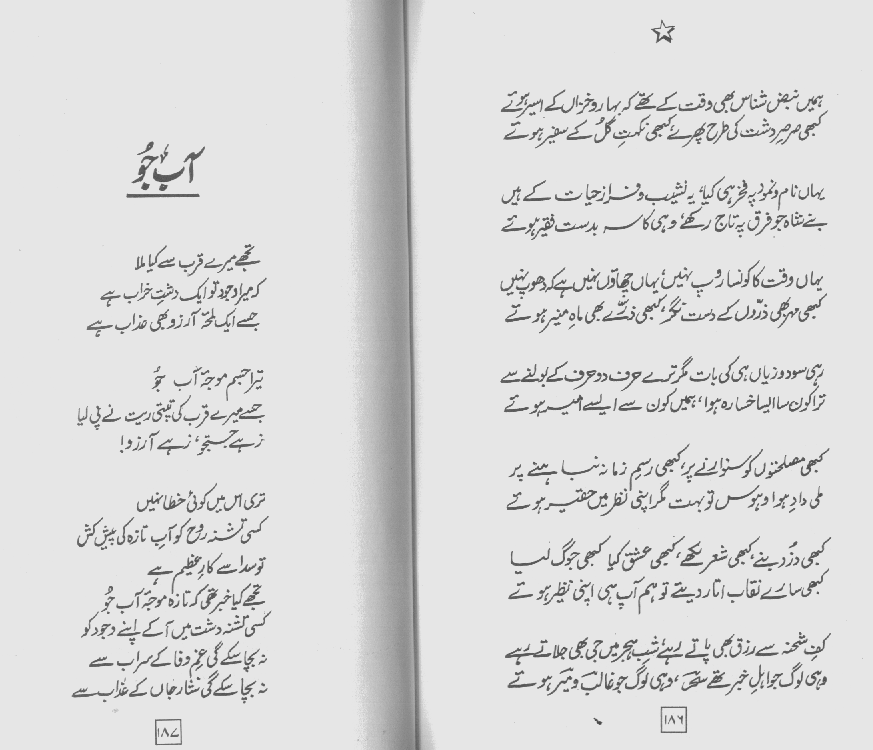 ہمیں نبض شناس بھی وقت کے تھے کہ بہار و خزاں کے اسیر ہوئے
کبھی صرصرِ دشت کی طرح پھرے، کبھی نکہتِ گل کے سفیر ہوئے
یہاں نام و نمود پہ فخر ہی کیا، یہ نشیب و فراز حیات کے ہیں
بنے شاہ جو فرق پہ تاج رکھے، وہی کاسہ بدست فقیر ہوئے
یہاں وقت کا کونسا روپ نہیں، یہاں چھاؤں نہیں ہے کہ دھوپ نہیں
کبھی مہر بھی ذروں کے دست نگر، کبھی ذرّے بھی ماہِ منیر ہوئے
رہی سود و زیاں ہی کی بات مگر ترے حرف دو حرف کے بولنے سے
ترا کون سا ایسا خسارہ ہوا، ہمیں کون سے ایسے امیر ہوئے
کبھی مصلحتوں کو سنوارنے پر، کبھی رسمِ زمانہ نباہنے پر
ملی دادِ ہوا و ہوس تو بہت مگر اپنی نظر میں حقیر ہوئے
کبھی دُزد بنے، کبھی شعر لکھے، کبھی عشق کیا کبھی جوگ لیا
کبھی سارے نقاب اتار دیتے تو ہم آپ ہی اپنی نظیر ہوئے
کفِ شحنہ سے رزق بھی پاتے رہے، شبِ ہجر میں جی بھی جلاتے رہے
وہی لوگ جو اہلِ خبر تھے سحر، وہی لوگ جو غالب و میر ہوئے
۱۸۶
آبِ جُو
تجھے میرے قرب سے کیا ملا
کہ میرا وجود تو ایک دشتِ خراب ہے
جسے ایک لمحۂ آرزو بھی عذاب ہے
تیرا جسم موجۂ آب جُو
جسے میرے قرب کی تپتی ریت نے پی لیا
زہے جستجو، زہے آرزو!
تری اس میں کوئی خطا نہیں
کسی تشنہ روح کو آبِ تازہ کی پیش کش
تو سدا سے کارِ عظیم ہے
تجھے کیا خبر تھی کہ تازہ موجۂ آب جُو
کسی تشنہ دشت میں آ کے اپنے وجود کو
نہ بچا سکے گی عزمِ وفا کے سراب سے
نہ بچا سکے گی نشارِ جاں کے عذاب سے
۱۸۷